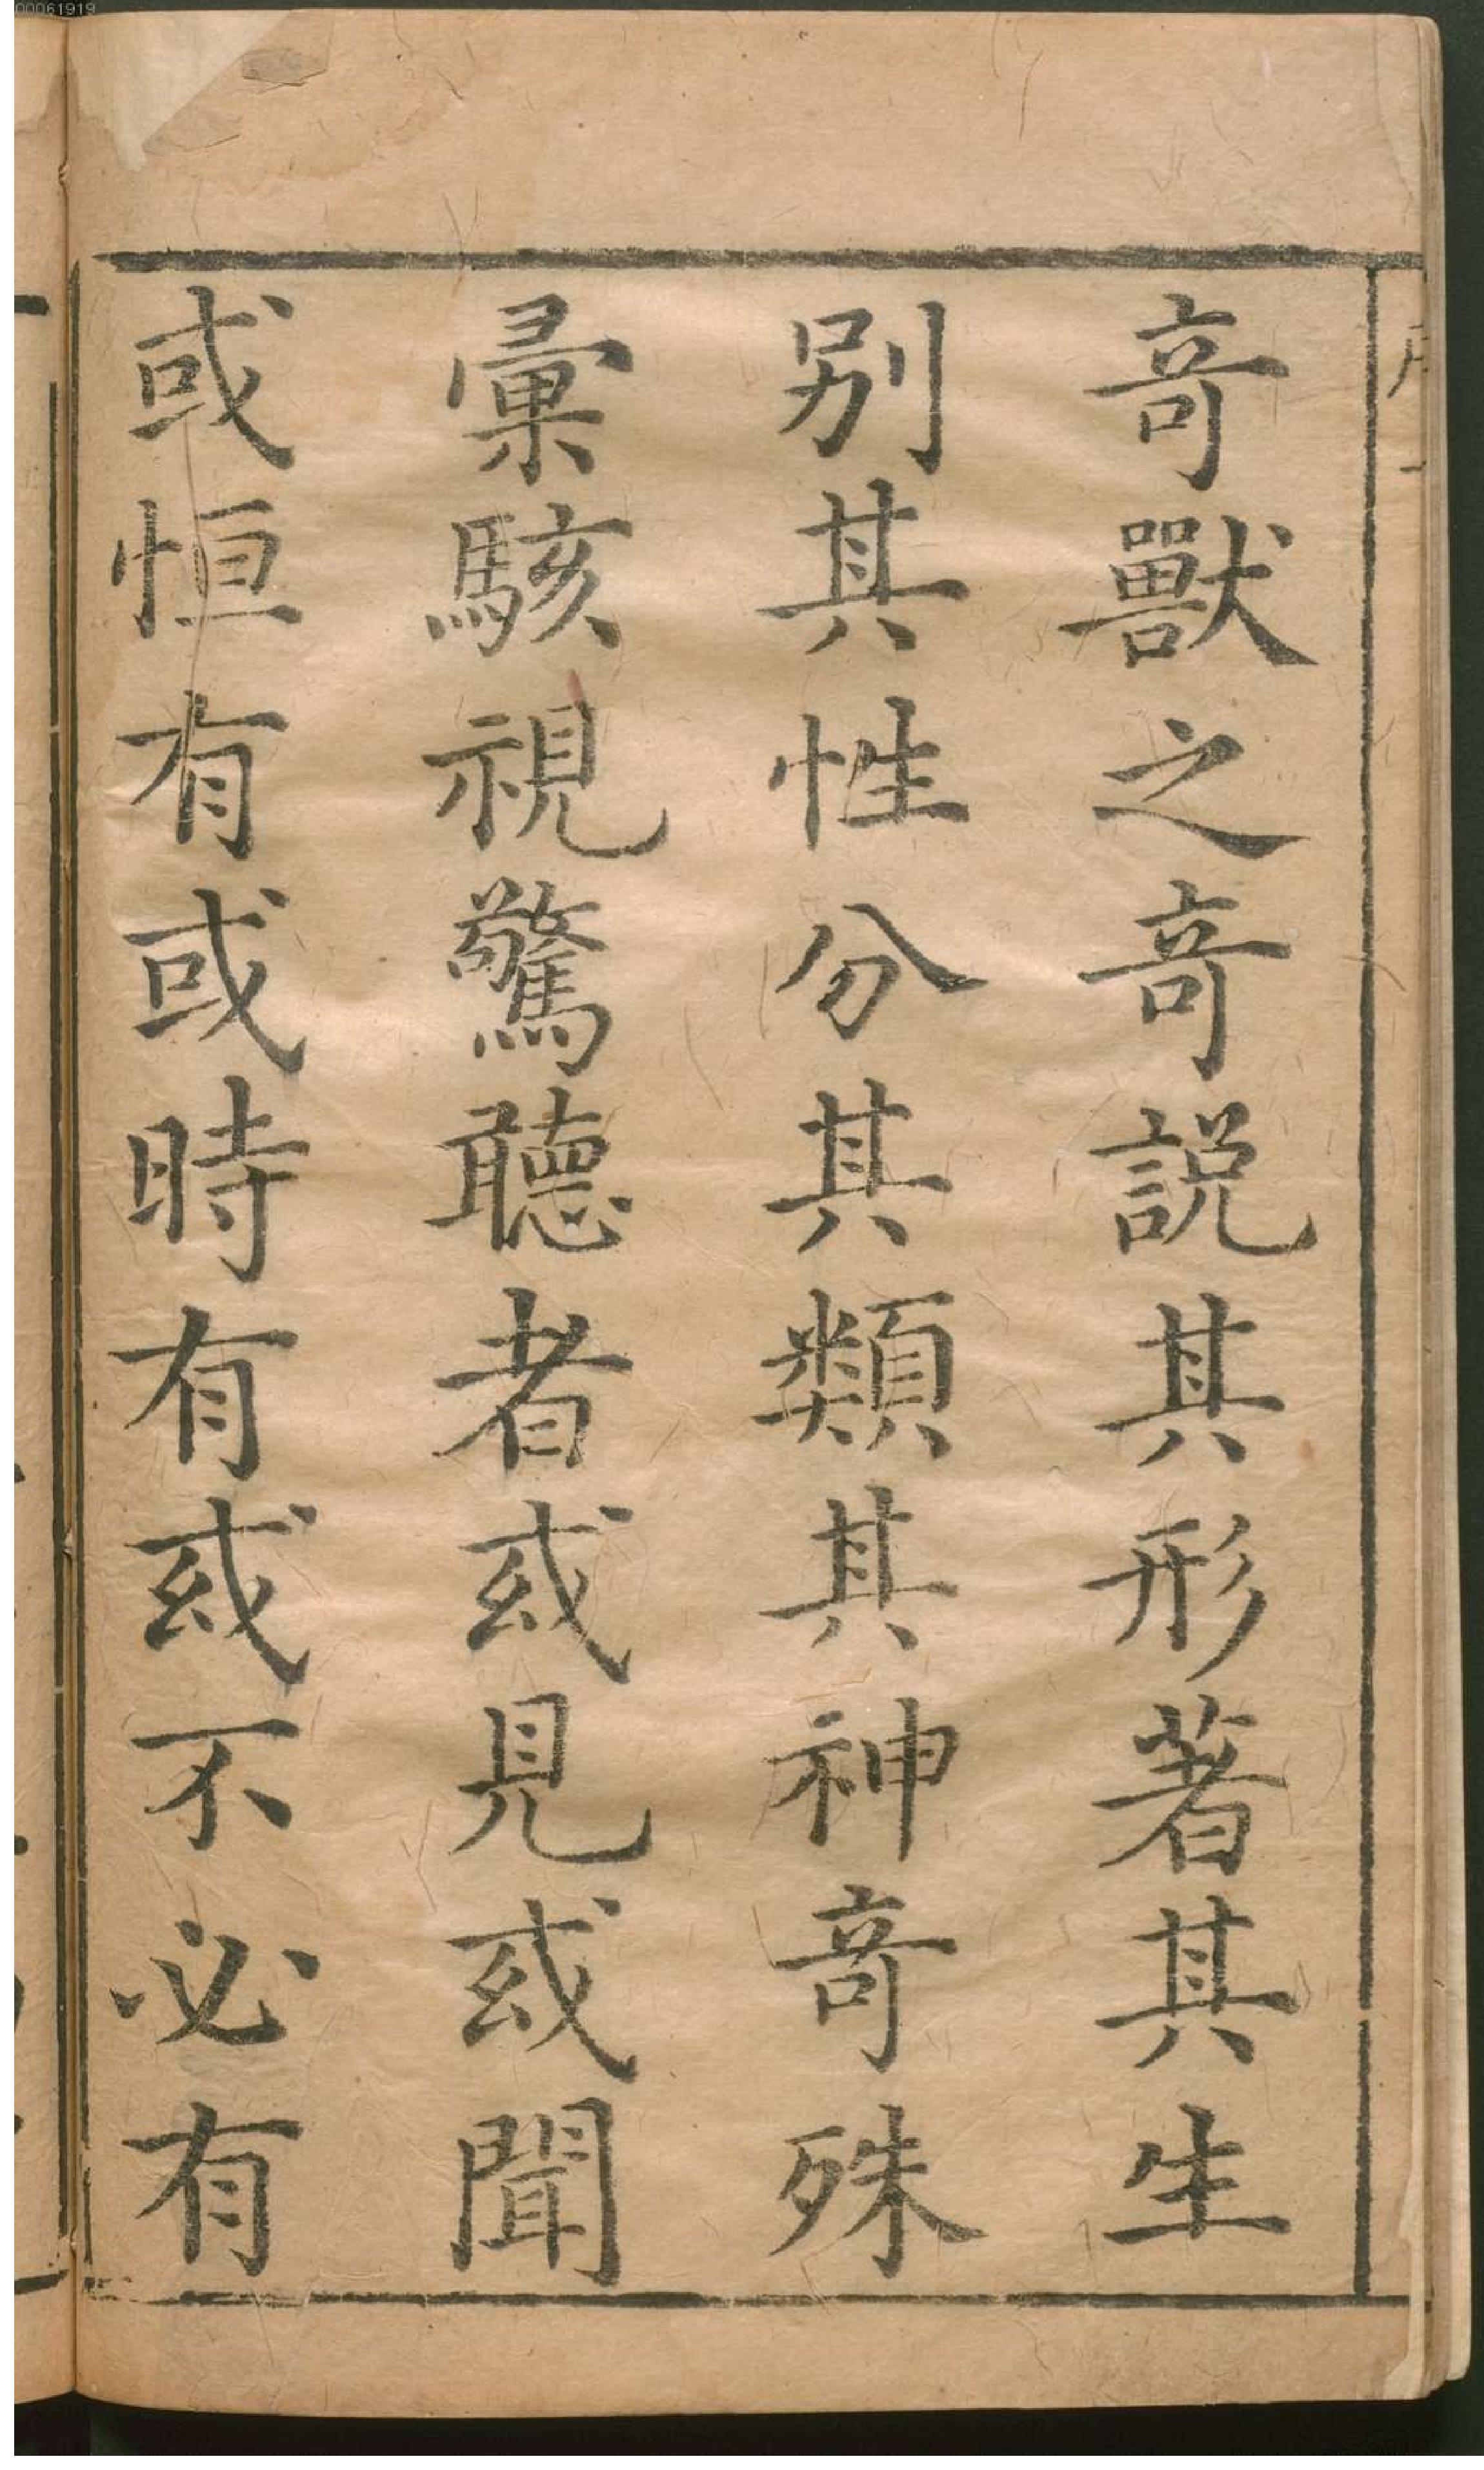 竒獸之竒說其形著其生
别其性分其類其神竒殊
彙駭視驚聽者或見或聞
或恒有或時有或不必有
00061919